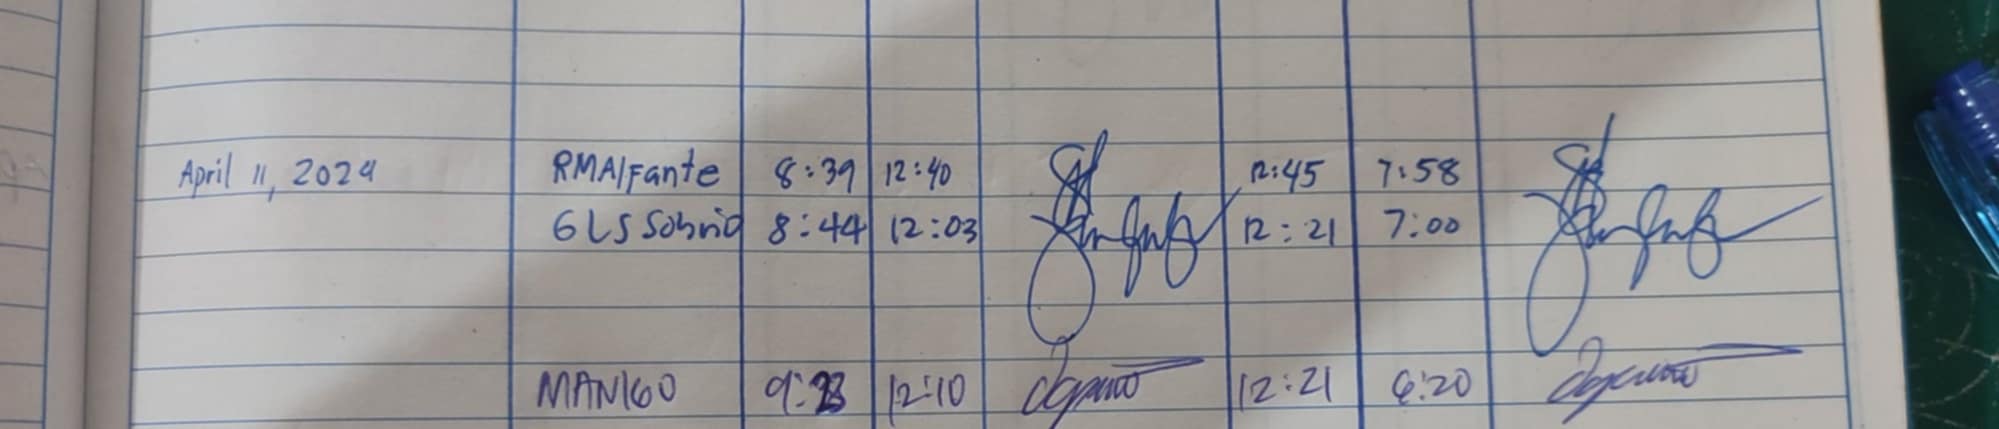 April 11, 2024 RMAlfante 8:39 12:40 12:45 7:58
GLS Sobrio 8:44 12:03 12:21 7:00
12:10 12:21 6:20